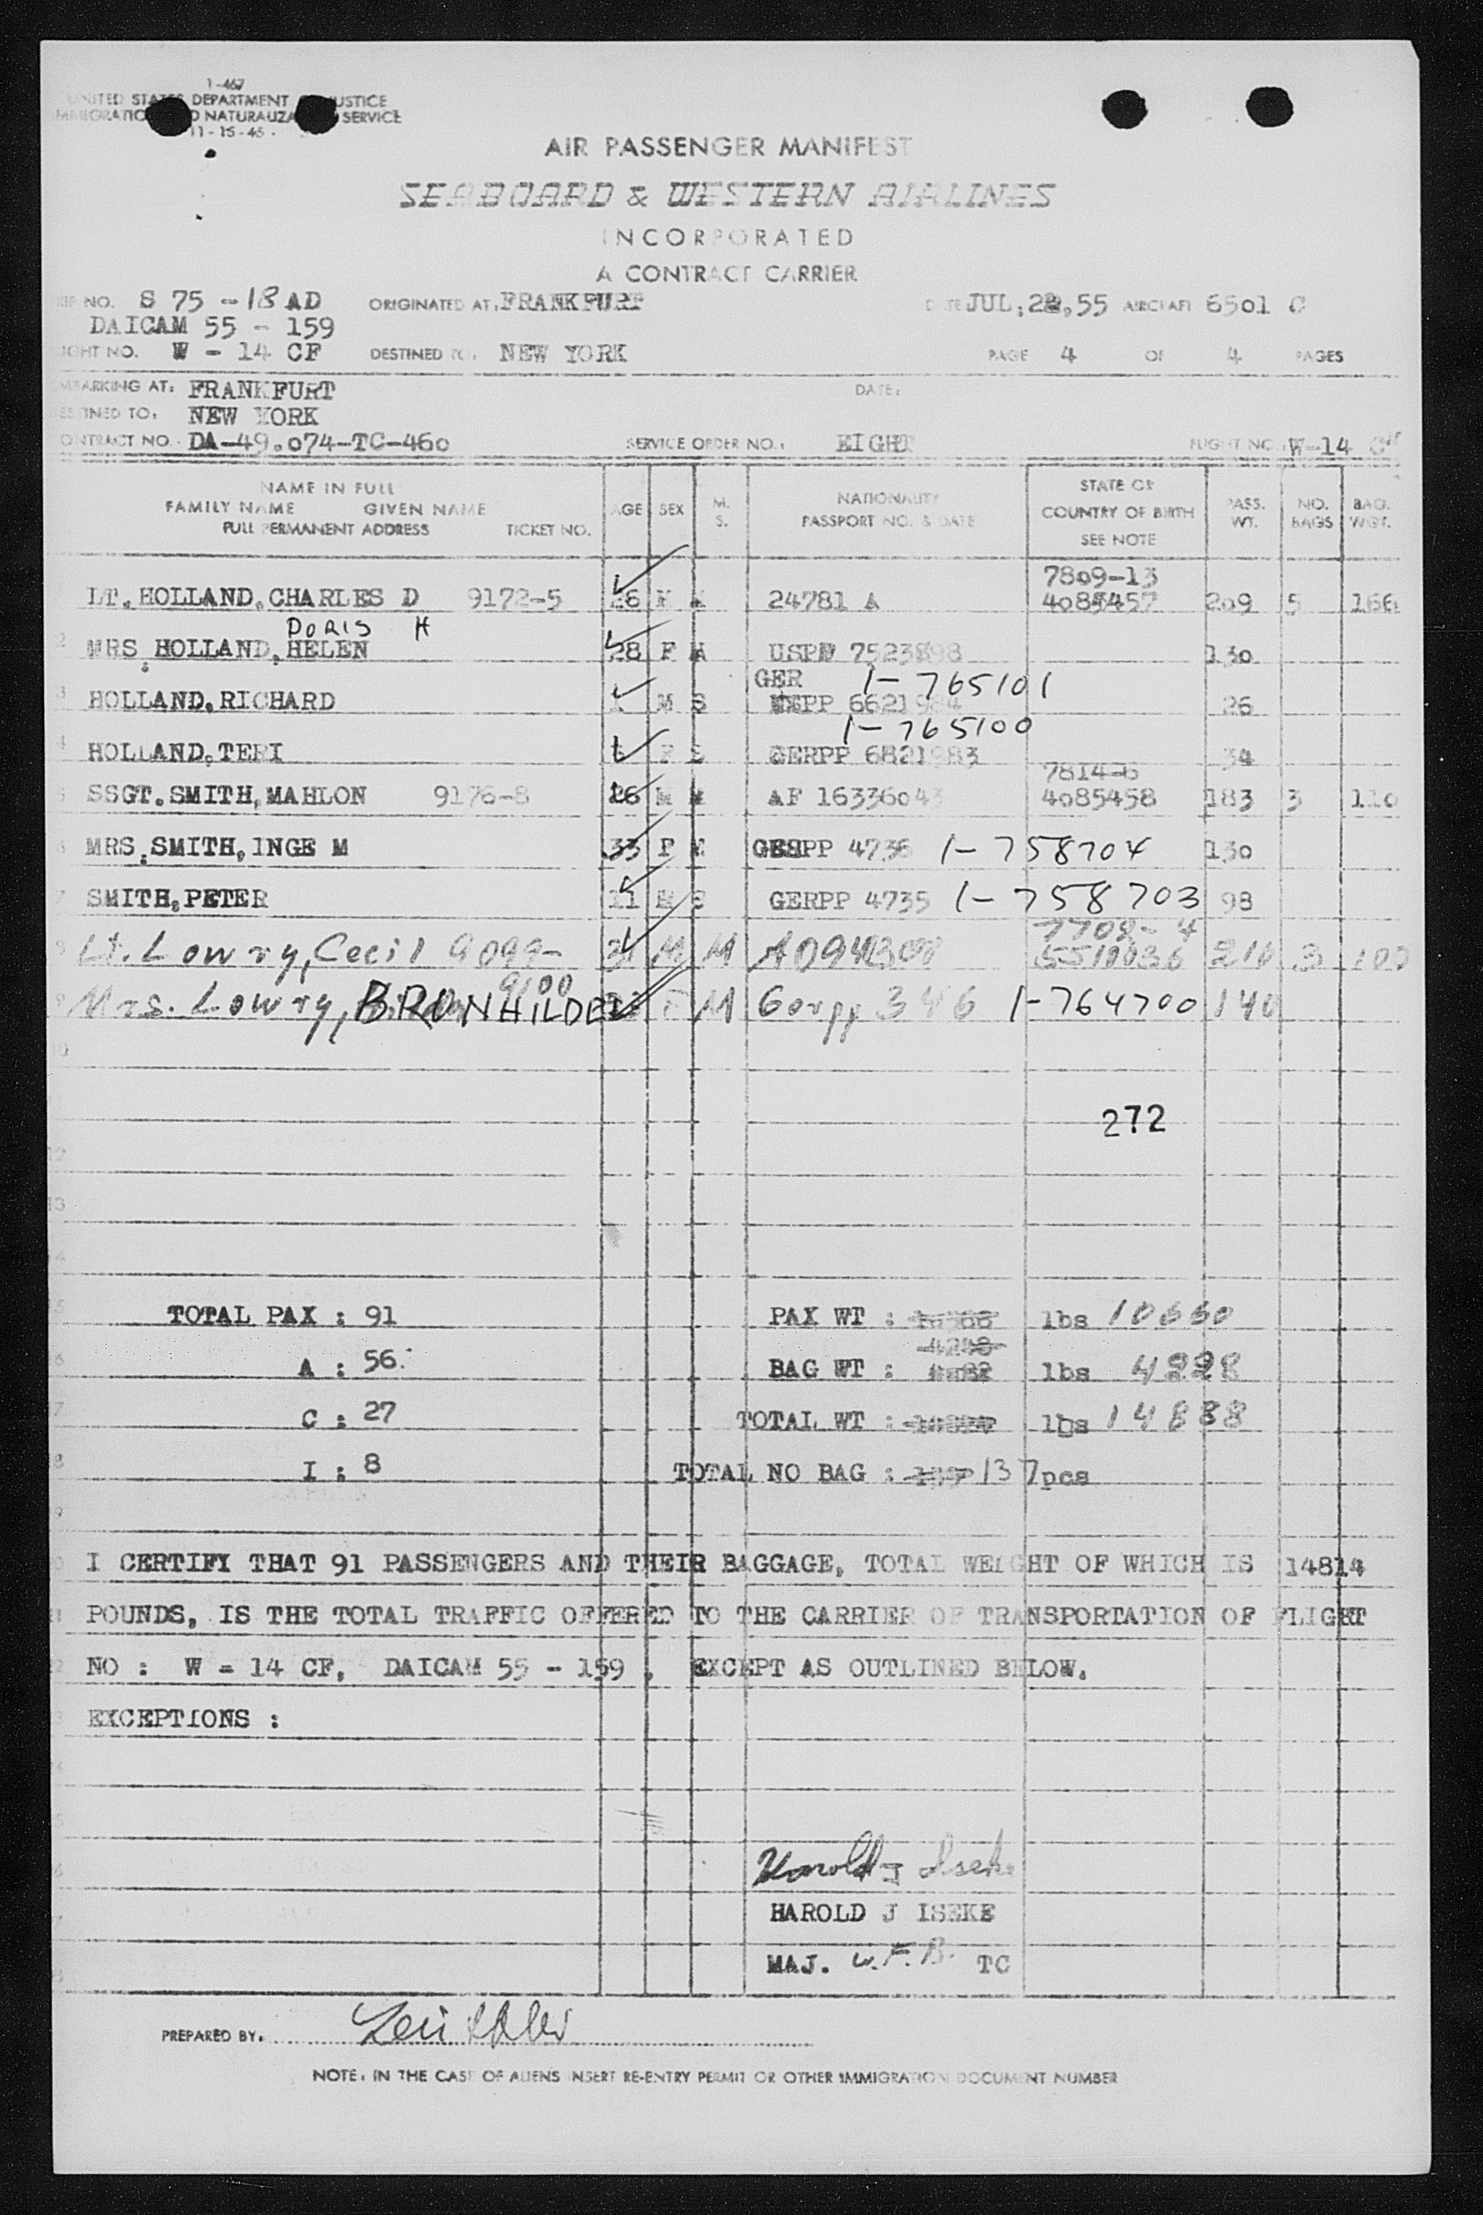 1-467
UNITED STATES DEPARTMENT OF JUSTICE
IMMIGRATION AND NATURALIZATION SERVICE
11-15-45.
AIR PASSENGER MANIFEST
SEABOARD & WESTERN AIRLINES
INCORPORATED
A CONTRACT CARRIER
TRIP NO. S 75 - 18 AD ORIGINATED AT, FRANKFURT DATE JUL, 22, 55 AIRCRAFT 6501 C
DAICAM 55 - 159
FLIGHT NO. W - 14 CF DESTINED TO, NEW YORK PAGE 4 OF 4 PAGES
EMBARKING AT: FRANKFURT DATE:
DESTINED TO, NEW YORK
CONTRACT NO. DA-49.074-TC-460 SERVICE ORDER NO., EIGHT FLIGHT NO. W-14 CF
NAME IN FULL
FAMILY NAME GIVEN NAME
FULL PERMANENT ADDRESS TICKET NO. AGE SEX M. S. NATIONALITY PASSPORT NO. & DATE STATE OR COUNTRY OF BIRTH SEE NOTE PASS. WT. NO. BAGS BAG. WGT.
7809-13
LT. HOLLAND, CHARLES D 9172-5 26 M M 24781 A 4085457 209 5 166
DORIS H
2 MRS. HOLLAND, HELEN 28 F M USPP 130
GER 1-765101
3 HOLLAND, RICHARD M S 26
1-765100
4 HOLLAND, TERI F S GERPP 6821983 34
7814-6
5 SSGT. SMITH, MAHLON 9176-8 26 M M AF 16336043 4085458 183 3 110
6 MRS. SMITH, INGE M 33 F M GERPP 4736 1-758704 130
7 SMITH, PETER 11 M S GERPP 4735 1-758703 98
7708-4
8 Lt. Lowry, Cecil 9099- 31 M M 210 3 100
9100
9 Mrs. Lowry, BRUNHILDE F M Gerpp 346 1-764700 140
10
272
12
13
14
15 TOTAL PAX : 91 PAX WT : lbs 10660
6 A : 56. BAG WT : lbs 4228
7 C : 27 TOTAL WT : lbs 14888
8 I : 8 TOTAL NO BAG : 137 pcs
9
I CERTIFY THAT 91 PASSENGERS AND THEIR BAGGAGE, TOTAL WEIGHT OF WHICH IS 14814
POUNDS, IS THE TOTAL TRAFFIC OFFERED TO THE CARRIER OF TRANSPORTATION OF FLIGHT
NO : W - 14 CF, DAICAM 55 - 159 , EXCEPT AS OUTLINED BELOW.
EXCEPTIONS :
Harold J Iseke
HAROLD J ISEKE
MAJ. W.F.B. TC
PREPARED BY.
NOTE, IN THE CASE OF ALIENS INSERT RE-ENTRY PERMIT OR OTHER IMMIGRATION DOCUMENT NUMBER